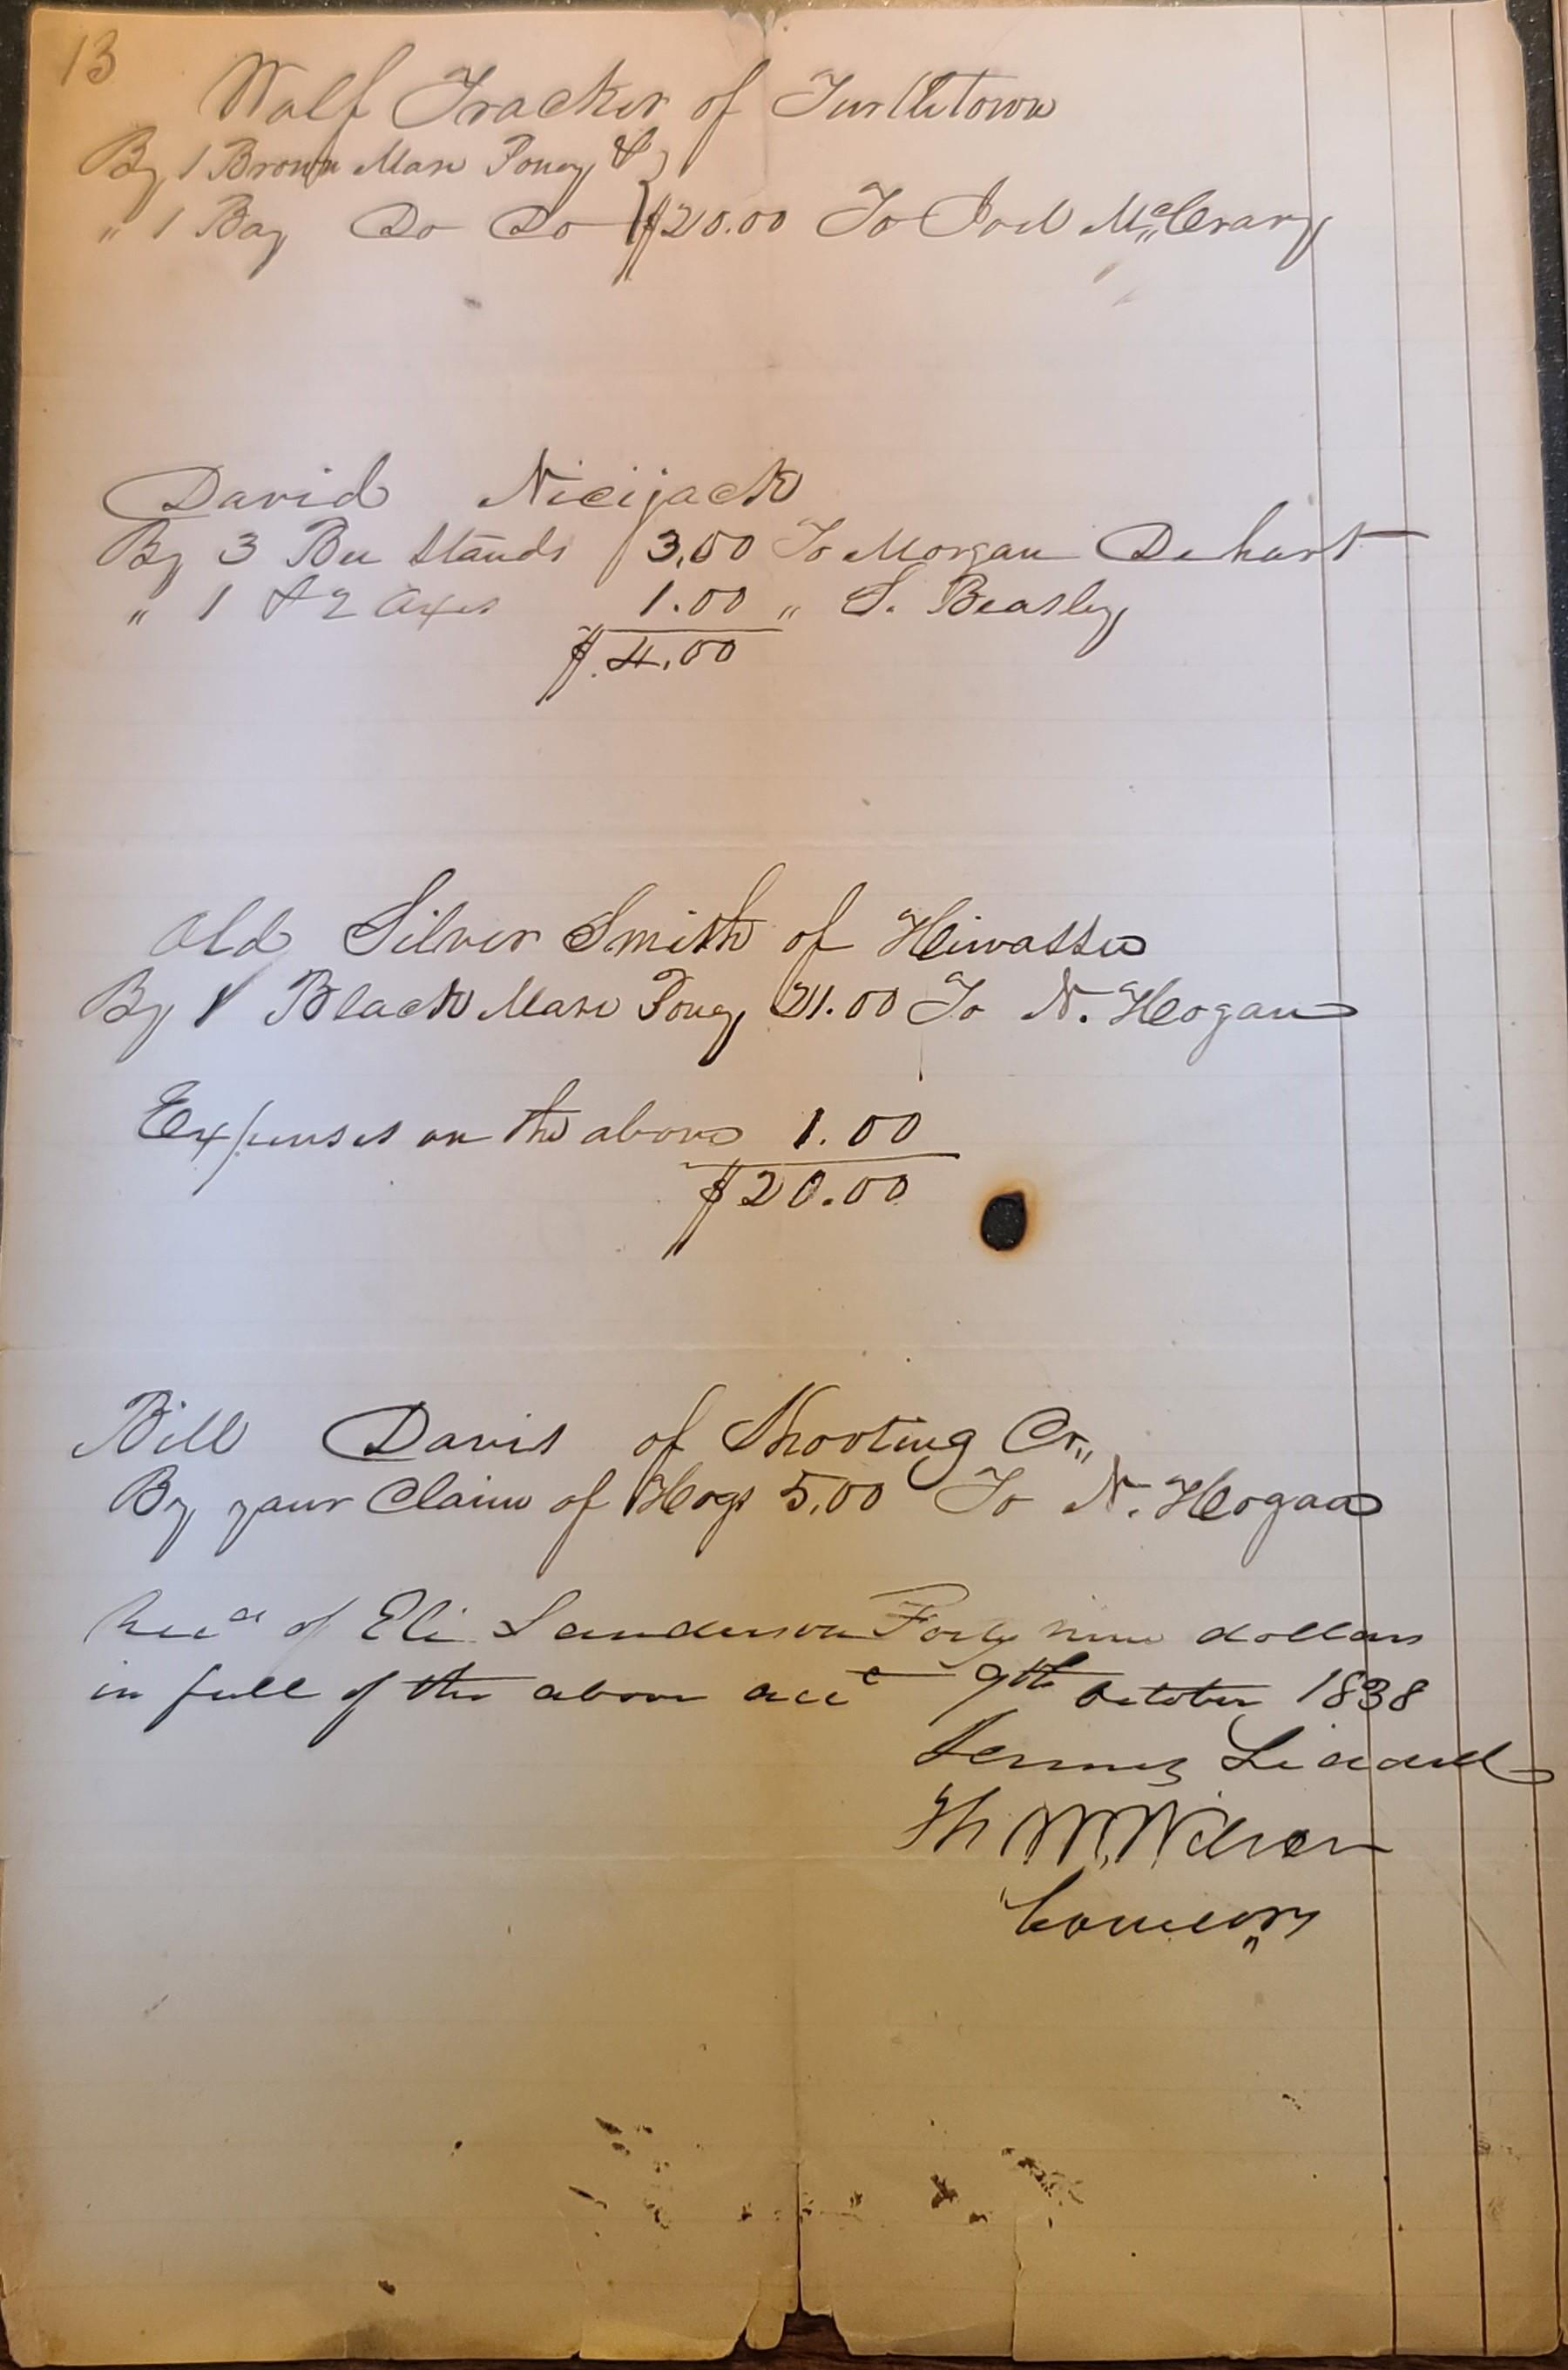 13
Wolf Tracker of Turtletown
By 1 Brown Mare Poney &
" 1 Bay Do Do $20.00 To Joel McCrary
David Nicijack
By 3 Bee Stands 3.00 To Morgan Dehart
" 1 & 2 Axes 1.00 " S. Beasley
$4.00
Old Silver Smith of Hiwassee
By 1 Black Mare Poney 21.00 To N. Hogan
Expenses on the above 1.00
$20.00
Bill Davis of Shooting Cr,,
By your Claim of Hogs 5.00 To N. Hogan
Recd of Eli Sanderson Forty nine dollars
in full of the above acct 9th October 1838
Th W. Wilson